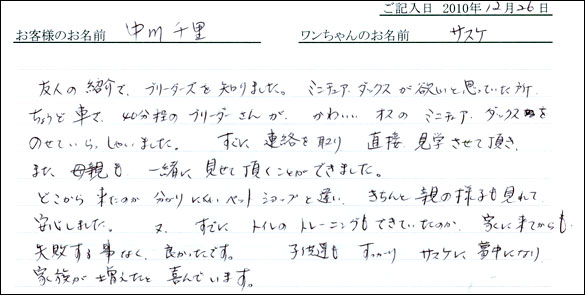 ご記入日 2010年12月26日
お客様のお名前 中川 千里 ワンちゃんのお名前 サスケ
友人の紹介で、ブリーダーズを知りました。 ミニチュア・ダックスが欲しいと思っていた所、
ちょうど車で、40分程のブリーダーさんが、かわいい オスの ミニチュア・ダックスを
のせていらっしゃいました。 すぐに 連絡を取り 直接 見学させて頂き、
また、母親も 一緒に見せて頂くことができました。
どこから 来たのか 分かりにくいペットショップと違い、きちんと親の様子も見れて
安心しました。 又、すでに トイレの トレーニングもできていたのか、家に来てからも
失敗する事なく、良かったです。 子供達も すっかり サスケに夢中になり
家族が増えたと喜んでいます。